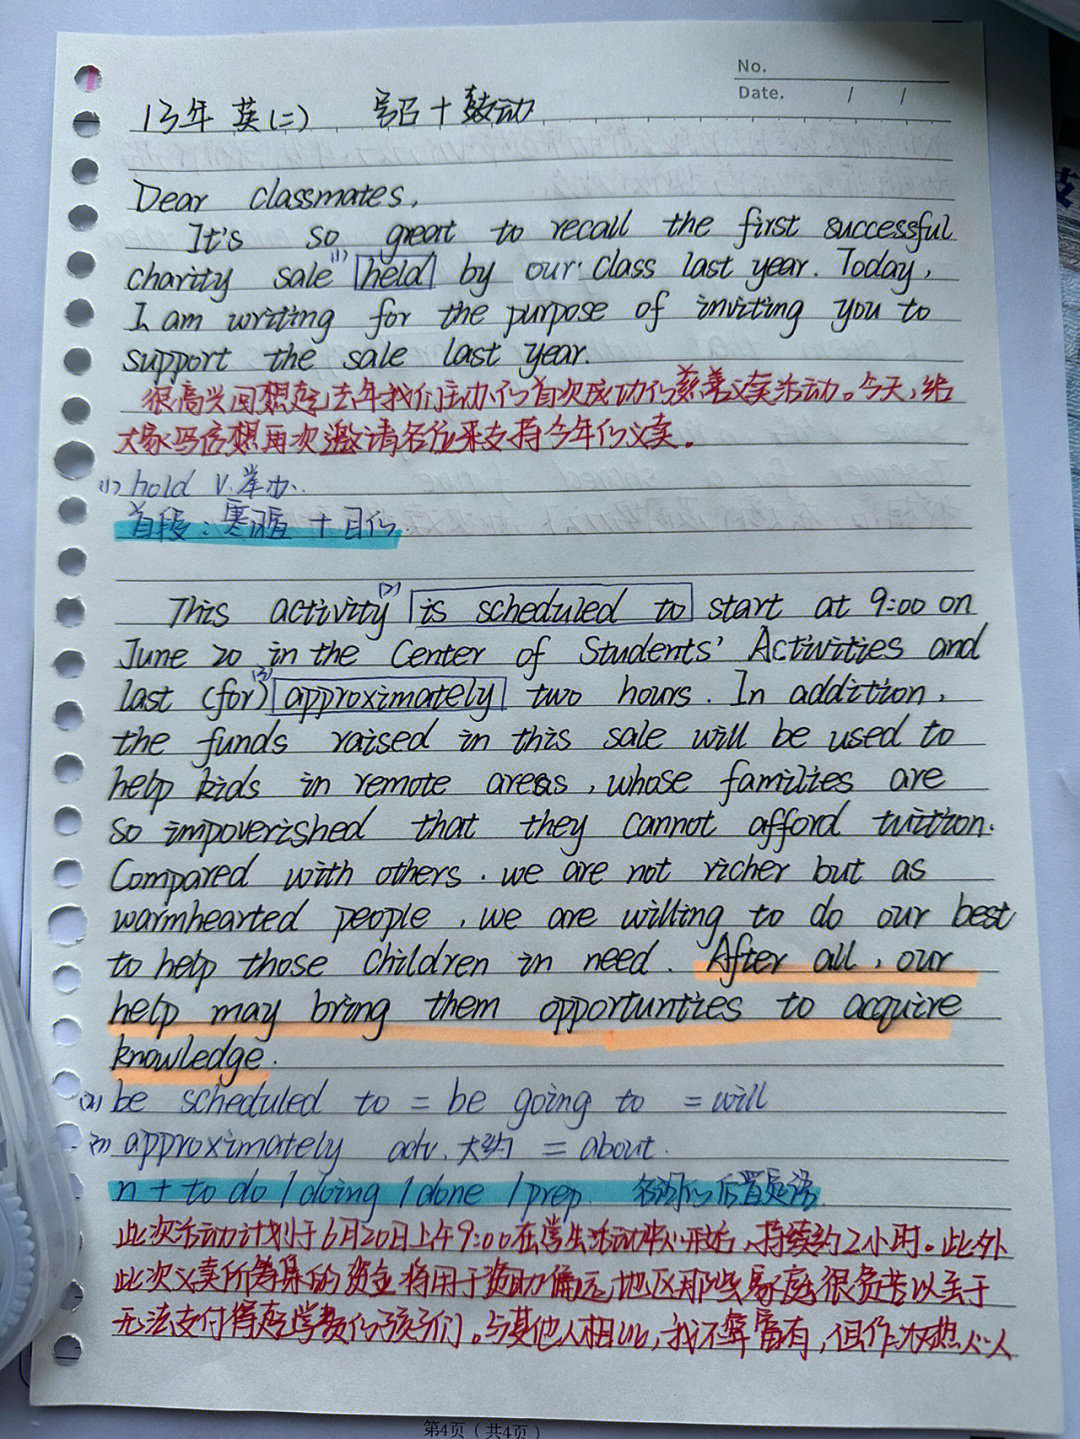 No.
Date. / /
13年 英(二) 号召+鼓动
Dear classmates,
It's so great to recall the first successful
charity sale (1) held by our class last year. Today,
I am writing for the purpose of inviting you to
support the sale last year.
很高兴回想起去年我们主办的首次成功的慈善义卖活动。今天,给
大家写信想再次邀请各位来支持今年的义卖。
(1) hold v.举办.
首段:寒暄+目的
This activity (2) is scheduled to start at 9:00 on
June 20 in the Center of Students' Activities and
last (for) (3) approximately two hours. In addition,
the funds raised in this sale will be used to
help kids in remote areas, whose families are
so impoverished that they cannot afford tuition.
Compared with others, we are not richer but as
warmhearted people, we are willing to do our best
to help those children in need. After all, our
help may bring them opportunties to acquire
knowledge.
(2) be scheduled to = be going to = will
(3) approximately adv. 大约 = about.
n + to do / doing / done / prep. 名词的后置定语
此次活动计划于6月20日上午9:00在学生活动中心开始,持续约2小时。此外
此次义卖所筹集的资金将用于资助偏远地区那些家庭很贫苦以至于
无法支付得起学费的孩子们。与其他人相比,我不算富有,但作为热心人
第4页(共4页)